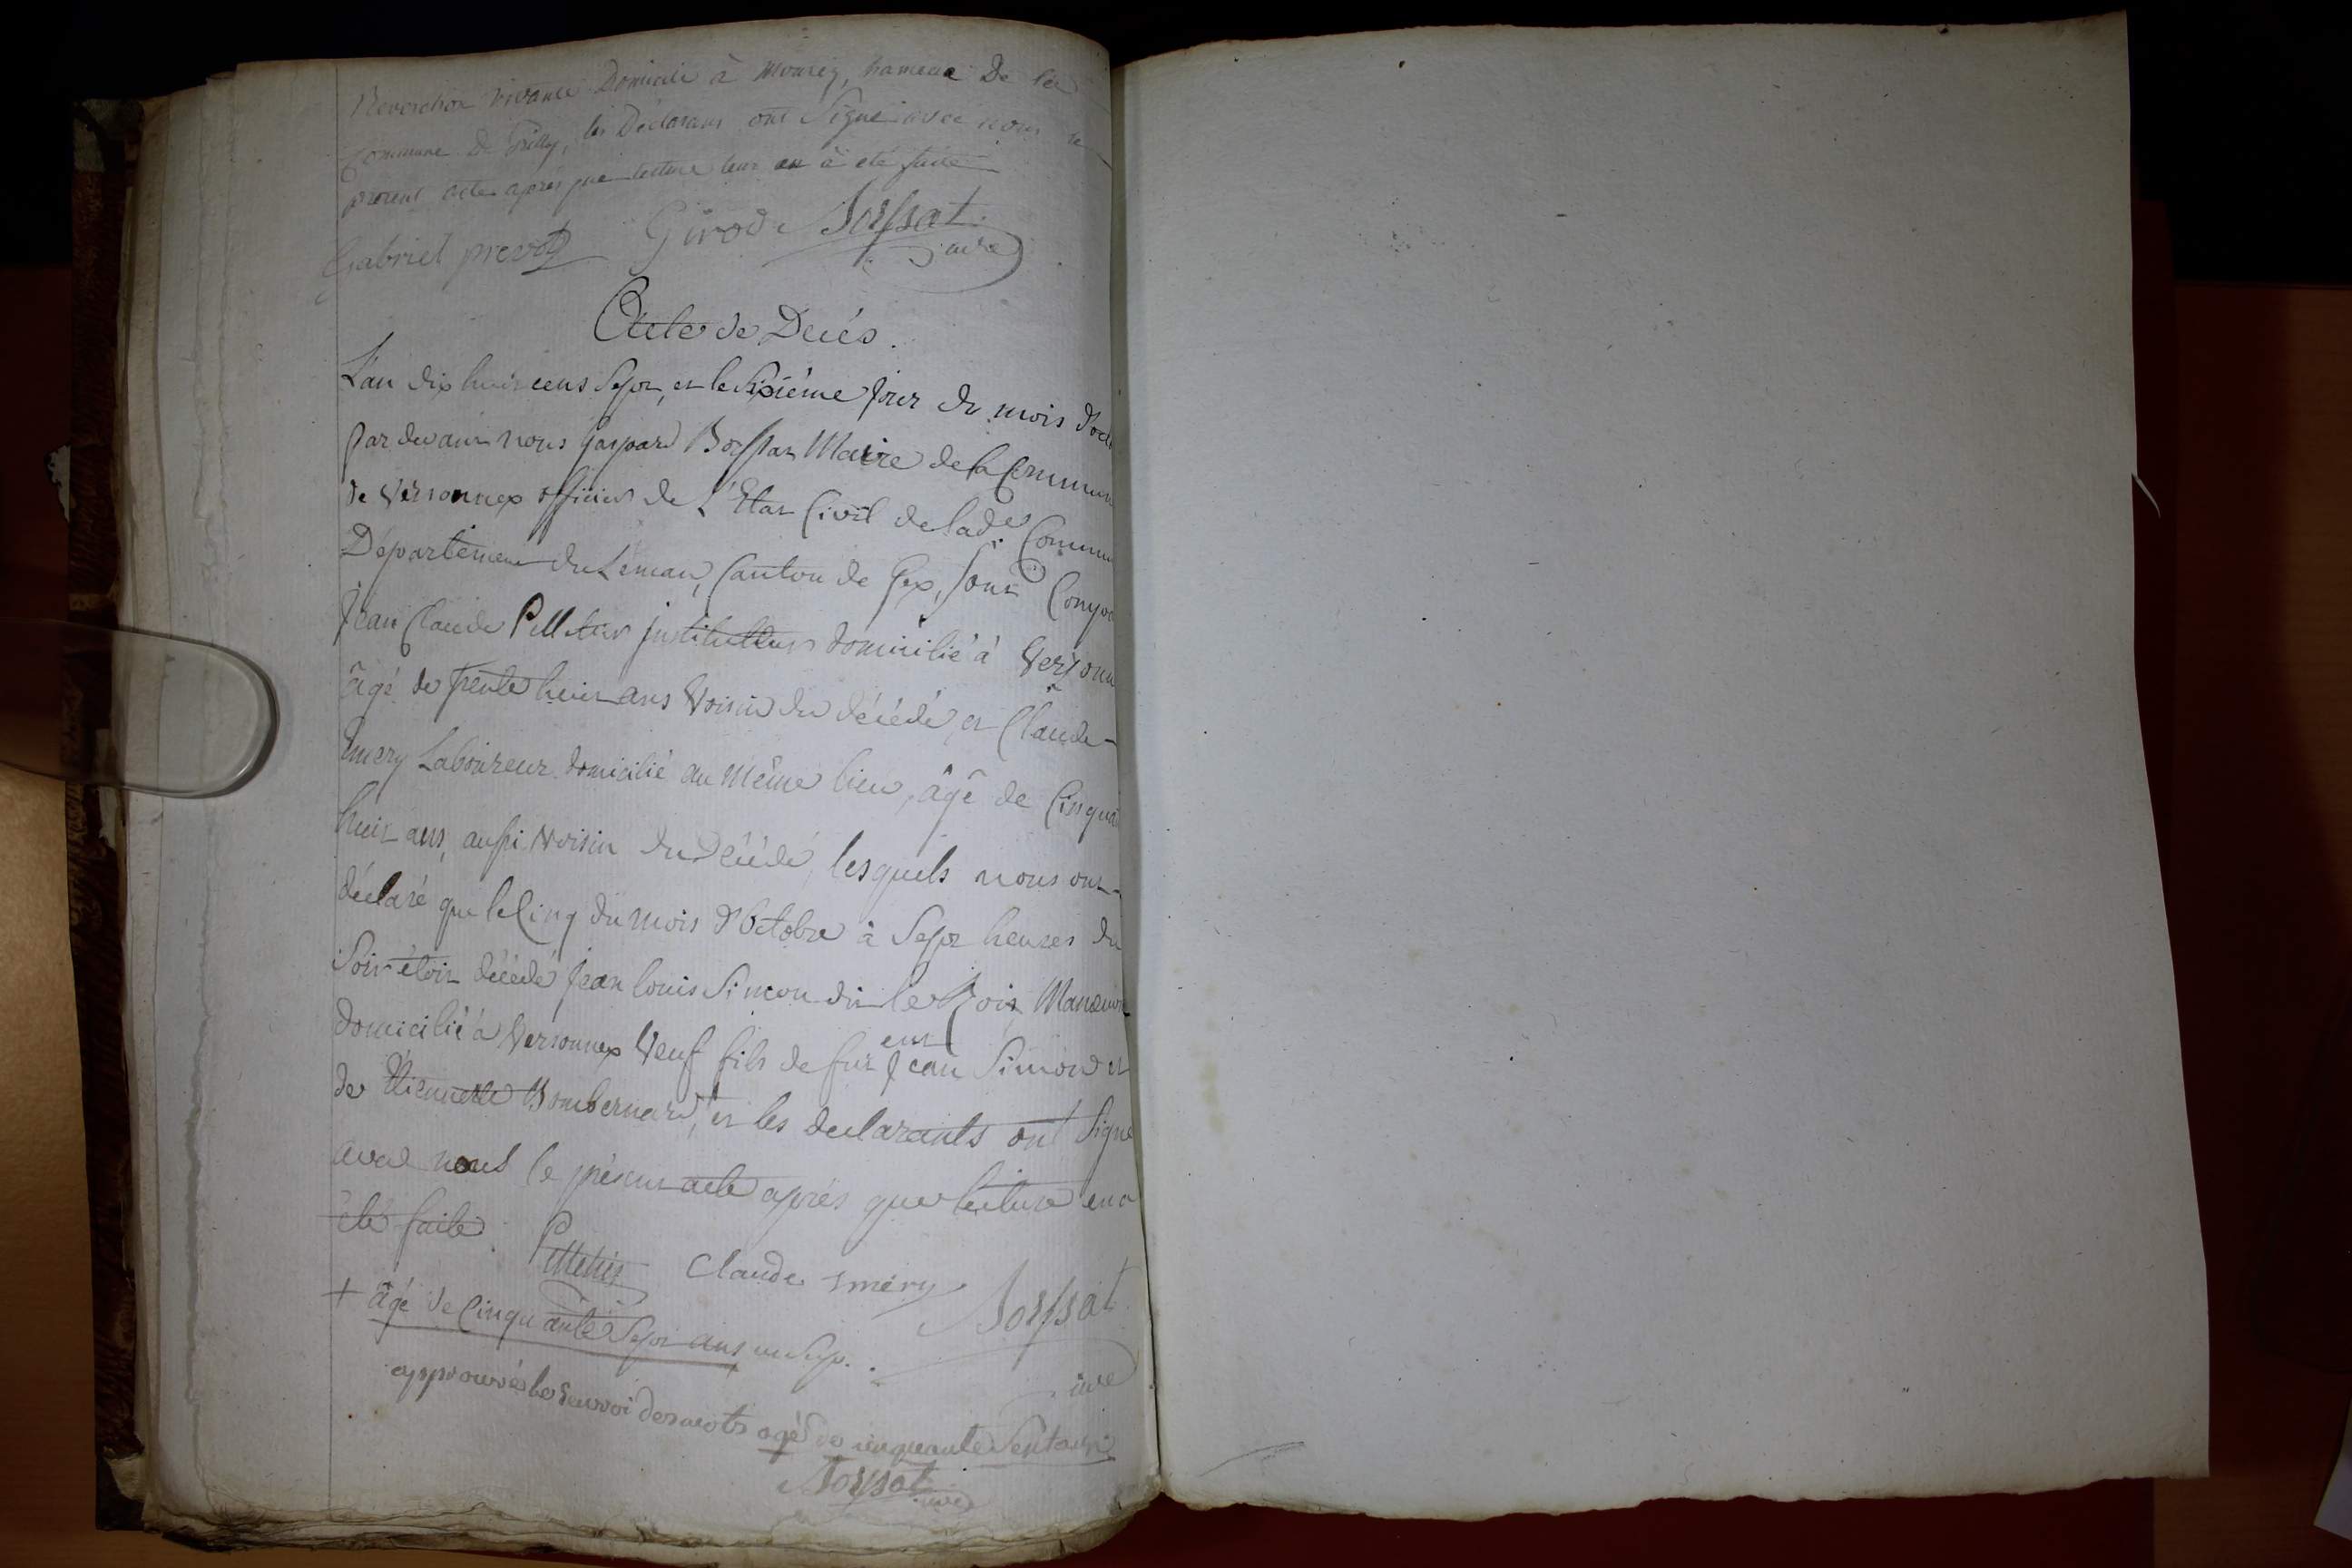 Reverchon vivante Domicile à Mourex, hameau De la
Commune De Grilly, les Déclarans ont Signé avec nous le
présent acte après que lecture leur en à eté faite
Gabriel prevot Girod Bossat
Acte de Decés.
L'an dix huit cens Sept, et le Sixiéme jour du mois d'oct
par devant nous Gaspard Bossat Maire de la Commun
de Versonnex officier de L'Etat Civil de lad.e Commu
Département du Leman, Canton de Gex, sont Compa
Jean Claude Pelletier instituteur domicilié à Versonn
âgé de trente huit ans Voisin du décédé, et Claude
Emery Laboureur domicilié au Même lieu, âgé de Cinqua
huit ans, aussi Voisin du Décédé, lesquels nous ont
déclaré que le Cinq du mois d'Octobre à Sept heures du
Soir étoit décédé Jean Louis Simon dit le Rois, Manouvr
eur
domicilié à Versonnex Veuf fils de fut Jean Simon et
de Etiennette Bombernard, et les declarants ont Signé
avec nous le présent acte aprés que lecture en a
été faite. Pelletier Claude Emery Bossat
+ âgé de Cinquante Sept ans
approuvés le Renvoi des mots agé de cinquante Sept ans
Bossat